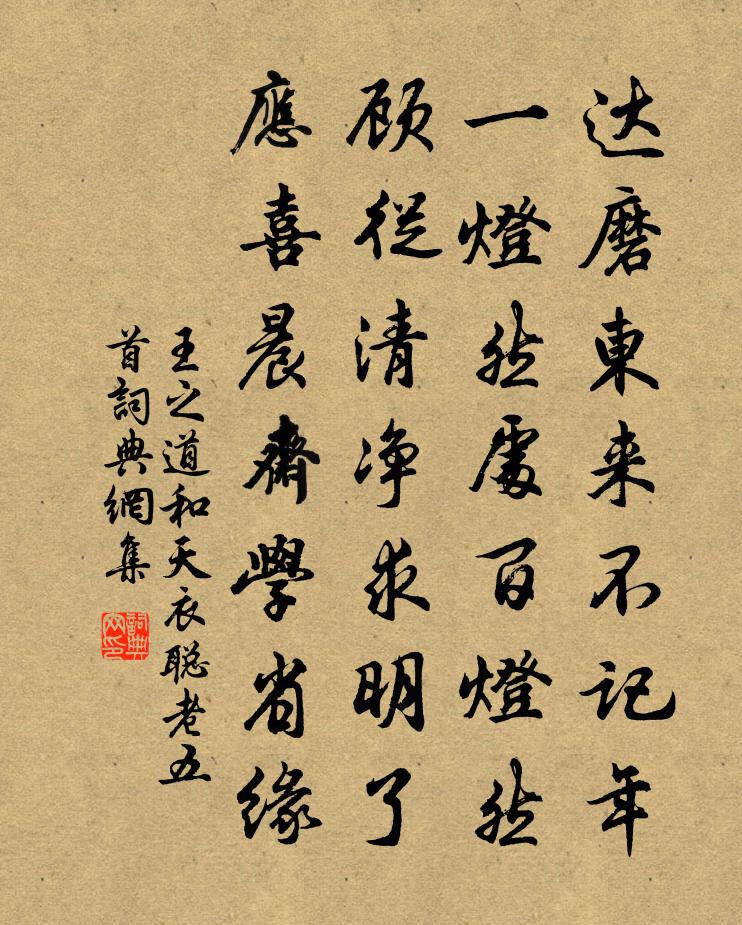 达磨東来不记年
一燈然處百燈然
顾從清净求明了
應喜晨齋學省缘
王之道和天衣聪老五
首詞典網集
詞典網印